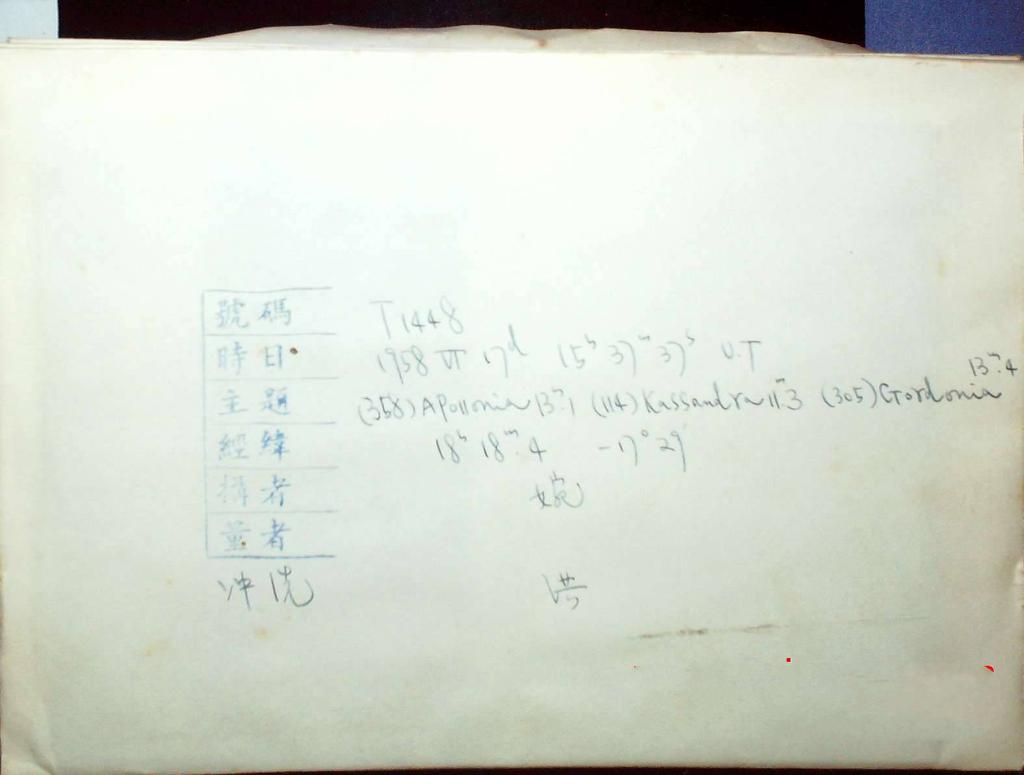 號碼 T1448
時日 1958 VI 17ᵈ 15ʰ 37ᵐ 37ˢ U.T
主題 (358) Apollonia 13ᵐ.1 (114) Kassandra 11ᵐ.3 (305) Gordonia 13ᵐ.4
經緯 18ʰ 18ᵐ.4 -17° 29'
攝者 婉
量者
冲洗